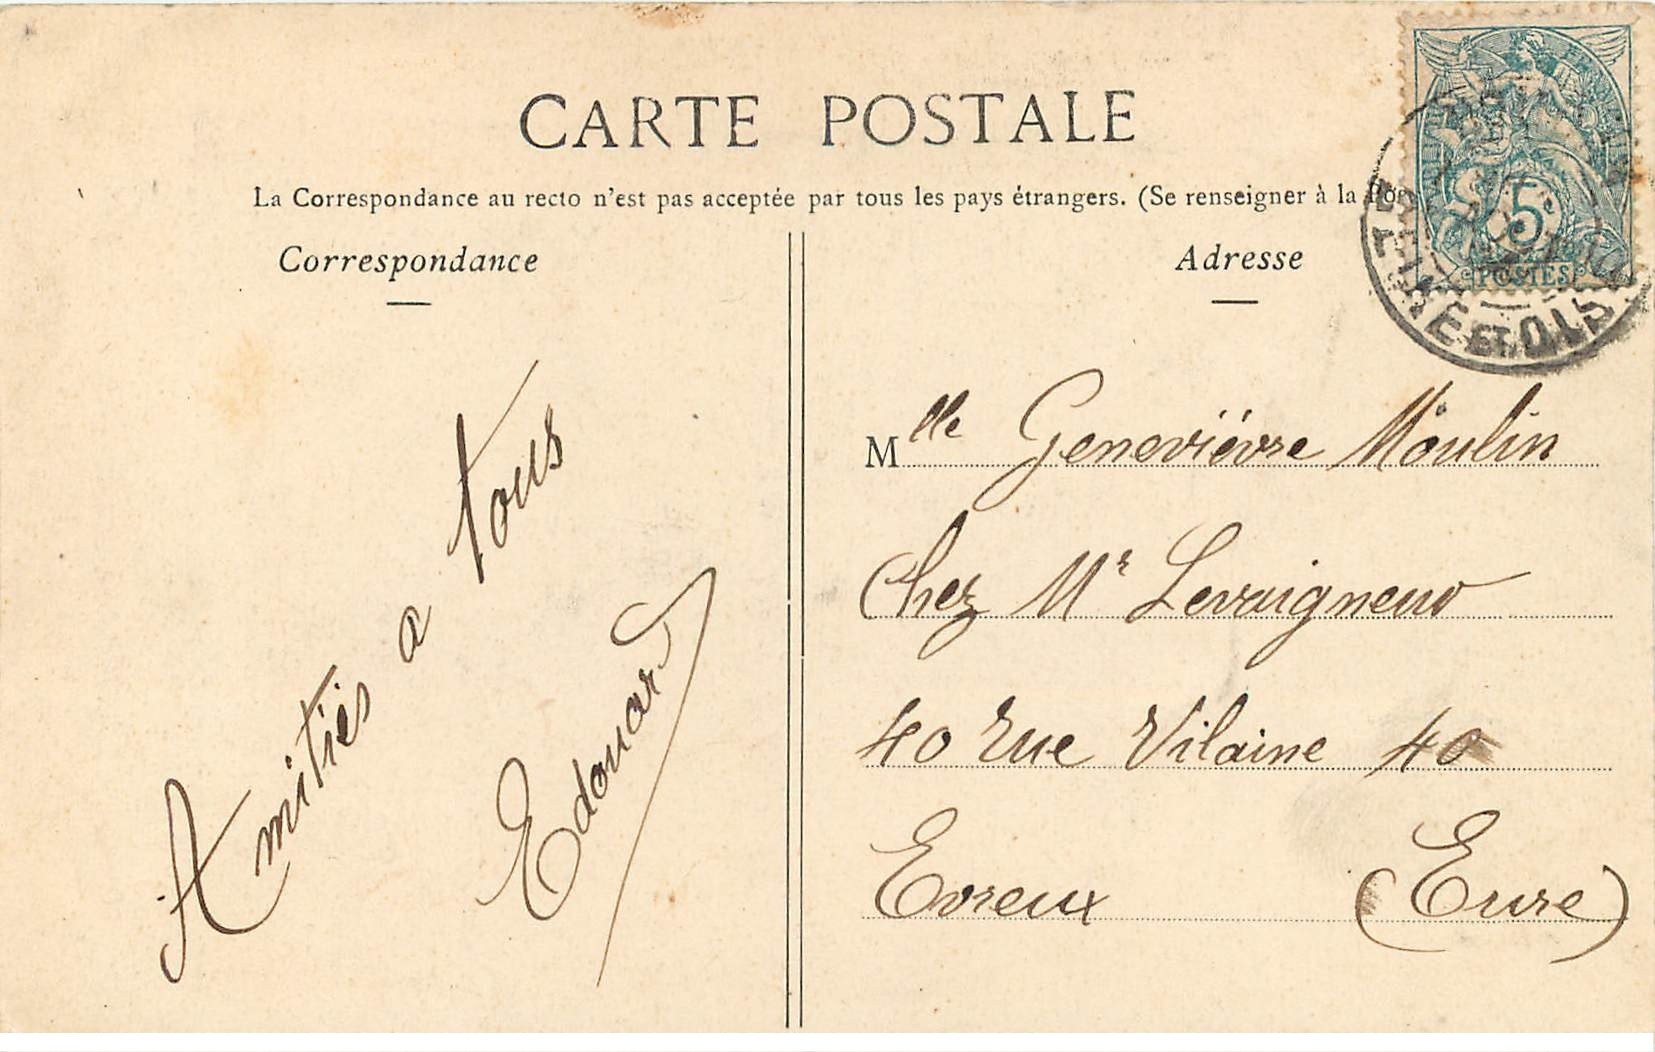 CARTE POSTALE
La Correspondance au recto n'est pas acceptée par tous les pays étrangers. (Se renseigner à la Pos
Correspondance
Adresse
5
POSTES
SEINE ET OISE
Amitiés a tous
Edouard
Mlle Geneviéve Moulin
Chez Mr Levaigneur
40 Rue Vilaine 40
Evreux (Eure)